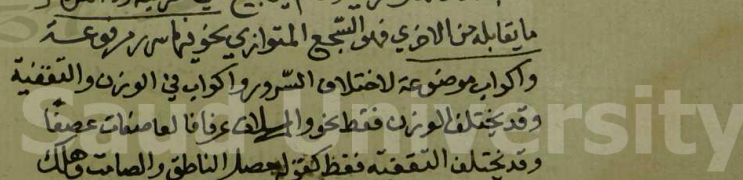 ما يقابله من الاخرى فهو السجع المتوازي نحو فيها سرر مرفوعة
واكواب موضوعة لاختلاف السرور واكواب في الوزن والتقفية
وقد يختلف الوزن فقط نحو والمرسلات عرفا فالعاصفات عصفا
وقد تختلف التقفية فقط كقولنا حصل الناطق والصامت وهلك
Saud University